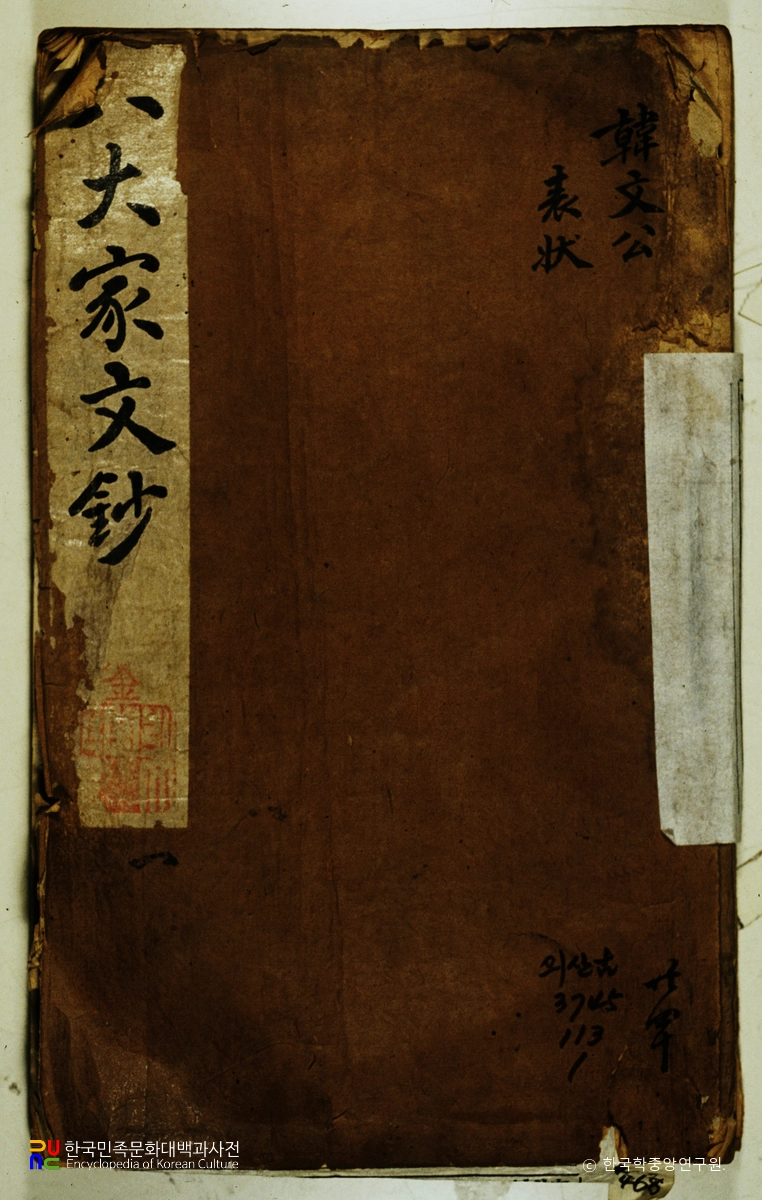 韓文公
表状
八大家文鈔
一
외산古
3745
113
1
共單
468
한국민족문화대백과사전
Encyclopedia of Korean Culture
© 한국학중앙연구원